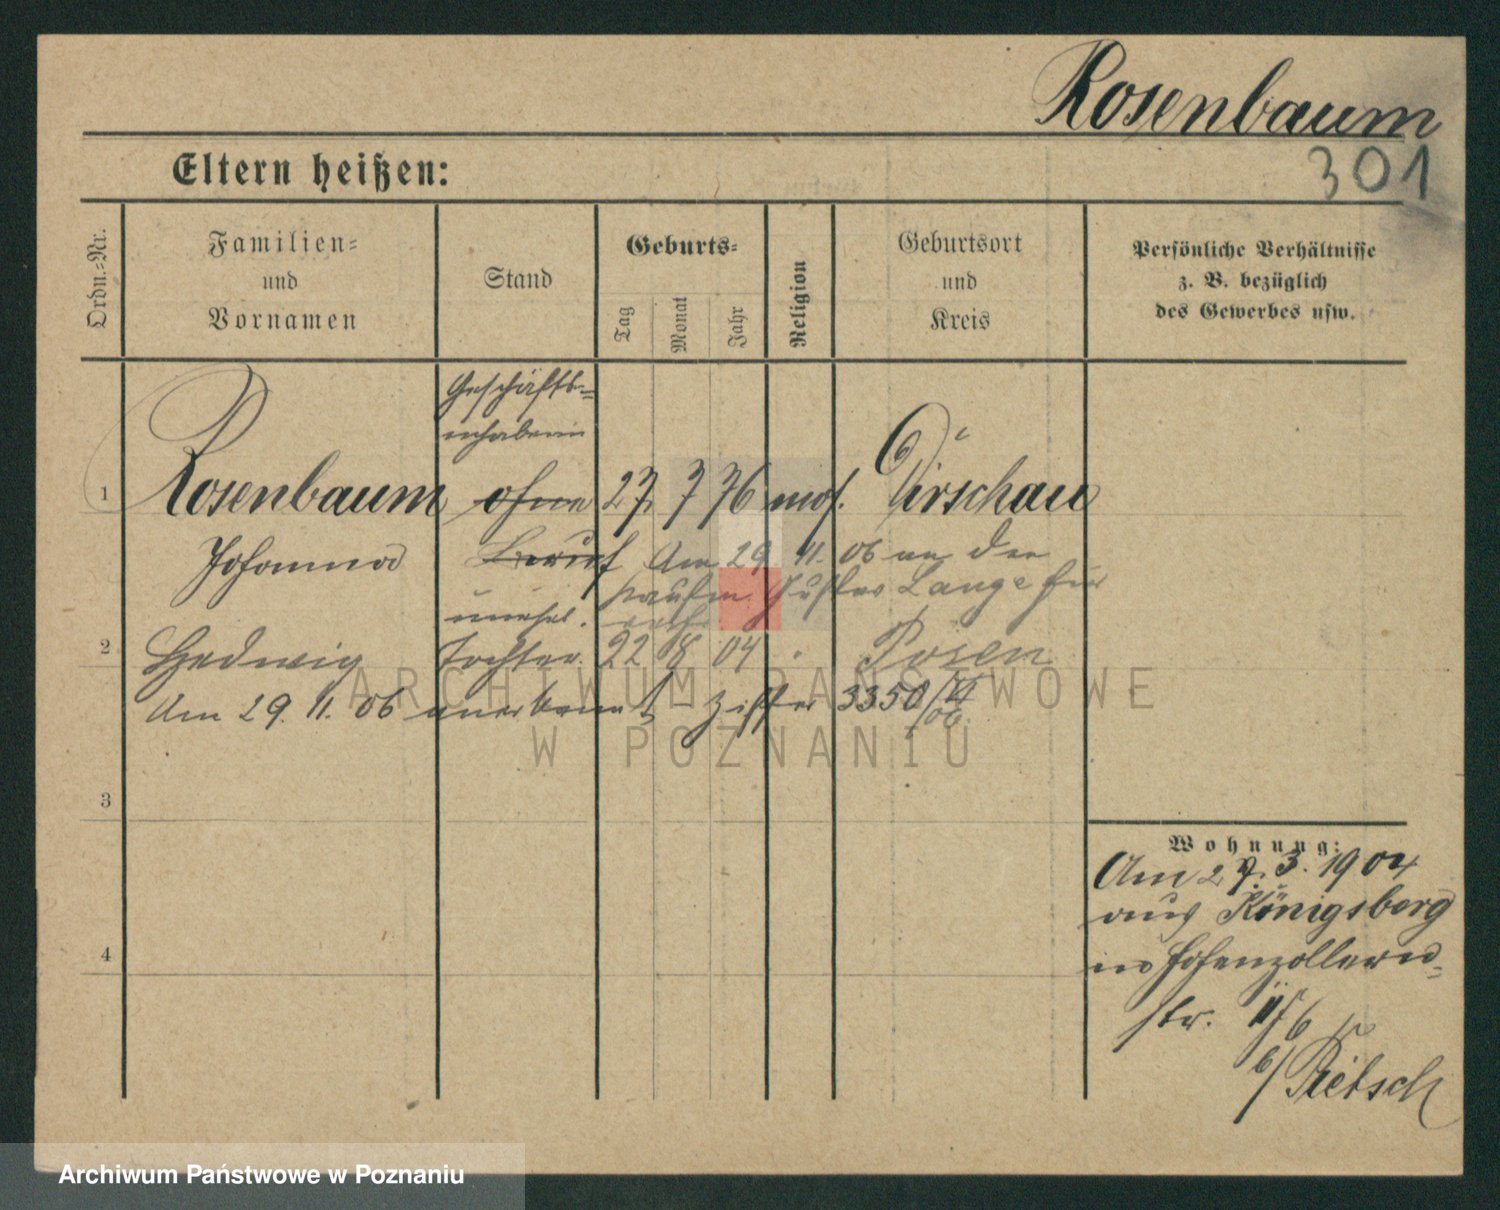 Rosenbaum
301
Eltern heißen:
Ordn.=Nr.
Familien=
und
Vornamen
Stand
Geburts=
Tag
Monat
Jahr
Religion
Geburtsort
und
Kreis
Persönliche Verhältnisse
z. B. bezüglich
des Gewerbes usw.
Geschäfts=
inhaberin
1 Rosenbaum ohne 27. 7 76 mos. Dirschau
Johanna Beruf Am 29 11. 06 an den
Kaufm. Gustav Lange
unehel.
2 Hedwig Tochter. 22 8 04 Posen
Am 29. 11. 06 anerkannt Ziffer 3350/VI 06.
3
4
Wohnung:
Am 27. 3. 1904
aus Königsberg
in Hohenzollern=
str.
b/ Pietsch
ARCHIWUM PAŃSTWOWE
W POZNANIU
Archiwum Państwowe w Poznaniu